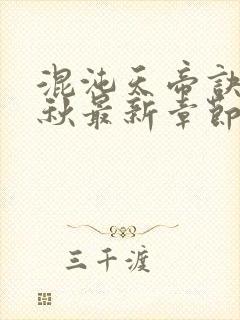 混沌天帝诀
秋最新章节
三千渡